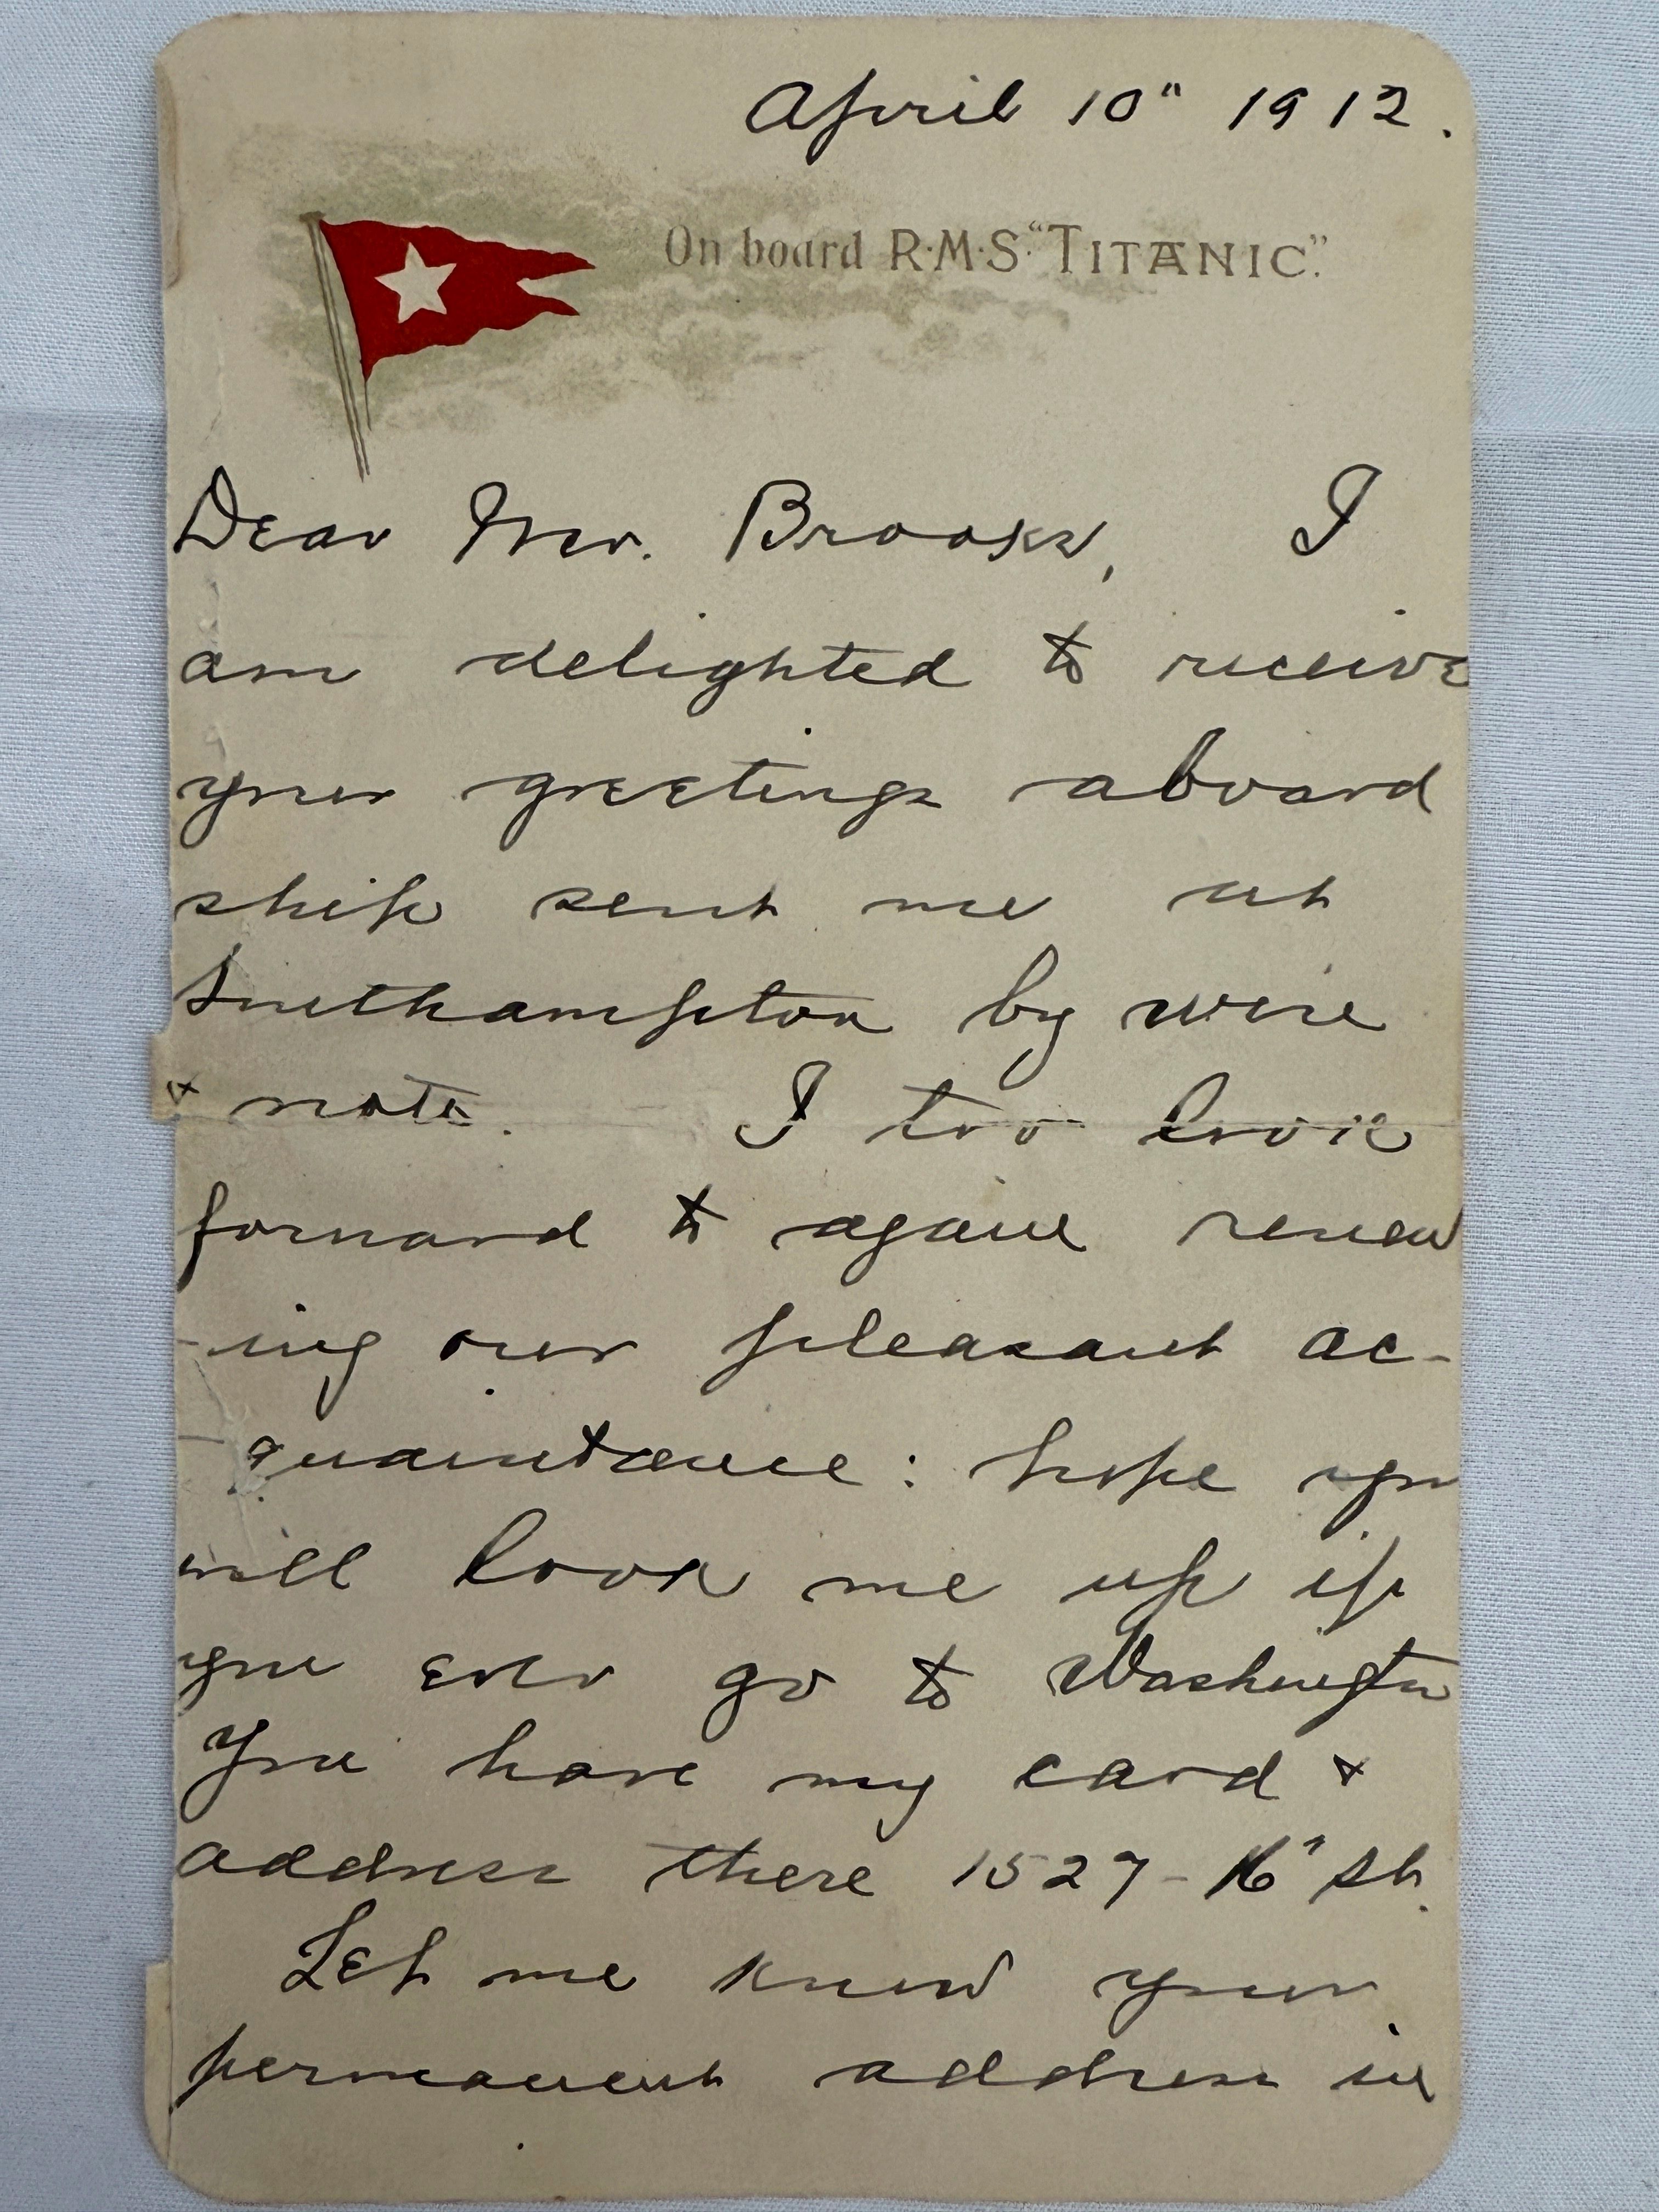 April 10" 1912.
On board R·M·S· "TITANIC".
Dear Mr. Brooks, I
am delighted to receive
your greetings aboard
ship sent me at
Southampton by wire
& note. I too look
forward to again renew
-ing our pleasant ac-
-quaintance : hope you
will look me up if
you ever go to Washington
You have my card &
address there 1527-16" St.
Let me know your
permanent address in